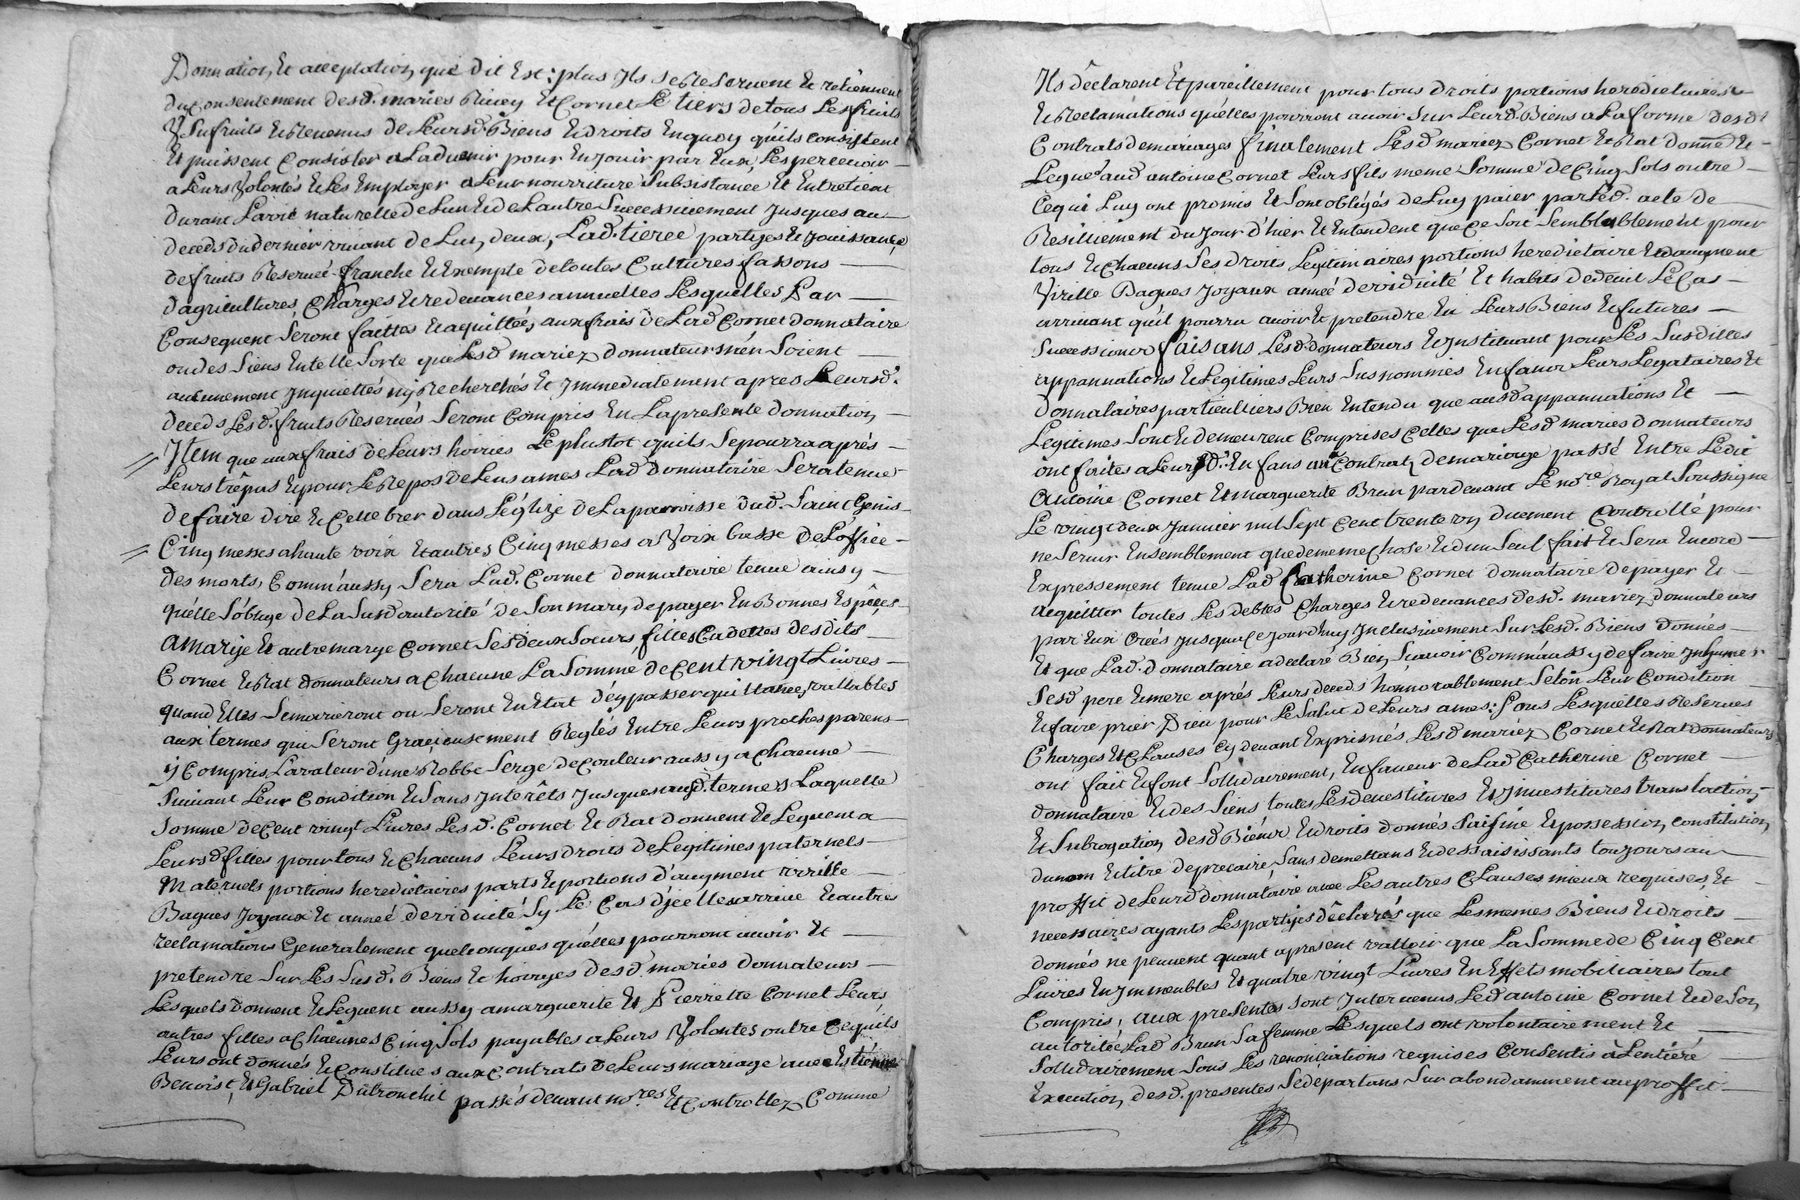 Donnation, et acceptation, que dit Est; plus Ils se Reservent et retiennent
du Consentement desd. maries Rivey Et Cornet Le tiers de tous Les fruits
Usufruits et Revenus de Leursd. Biens et droits En quoy qu'ils consistent
Et puissent Consister a Ladvenir pour En jouir par Eux, Les percevoir
a Leurs Volontés et Les Employer a Leur nourriture Subsistance Et Entretient
durant La vie naturelle de Lun et de Lautre Successivement jusques au
deceds du dernier vivant de Lus, deux, Lad. tierce partijes et jouissance,
de fruits Reservée franche et Exempte de toutes Cultures fassons
d'agricultures, Charges et redevances annuelles Lesquelles Par
Consequent Seront faittes et aquittées aux frais de Lad Cornet donnataire
ou des Siens En telle Sorte que Lesd mariez donnateurs n'en Soient
aucunement Inquiettés ny Recherchés Et Immediatement apres Leursd.
deceds Lesd. fruits Reservés Seront Compris En La presente donnation,
Item que aux frais de Leurs hoiries Le plustot qu'ils Se pourra aprés
Leurs trépas Et pour Le Repos de Leurs ames Lad donnataire Sera tenue
de faire dire et Cellebrer dans L'églize de La parroisse dud. Saint Genis
Cinq messes a haute voix et autres Cinq messes a Voix basse de L'office
des morts, Comm'aussy Sera Lad. Cornet donnataire tenue ainsy
qu'elle S'oblige de La Susd autorité de Son mary de payer En Bonnes Espèces
a Marije Et autre marye Cornet Ses deux Sœurs, filles Cadettes desdits
Cornet et Rat donnateurs a Chacune La Somme de Cent vingt Livres
quand Elles Se marieront ou Seront En Etat d'en passer quittances vallables
aux termes qui Seront Gracieusement Reglés Entre Leurs proches parens
y Compris La valeur d'une Robbe Serge de Couleur aussy a Chacune
Suivant Leur Condition et Sans Interêts jusques ausd. termes Laquelle
Somme de Cent vingt Livres Lesd. Cornet Et Rat donnent et Leguent a
Leursd filles pour tous et Chacuns Leurs droits de Legitimes paternels
Maternels portions hereditaires parts et portions d'augment virille
Bagues Joyaux Et année de viduité Sy Le Cas d'jcelle arrive et autres
reclamations Generalement quelconques qu'elles pourront avoir Et
pretendre Sur Les Susd. Biens et hoiryes desd. maries donnateurs
Lesquels donnent et Leguent aussy a marguerite Et Pierrette Cornet Leurs
autres filles a Chacunes Cinq Sols payables a Leurs Volontés outre Ce qu'ils
Leurs ont donnés et Constitués aux Contrats de Leurs mariage avec Estienne
Benoist, Et Gabriel Dutronchit passés devant nores Et Controllez Comme
Ils dêclarent Et pareillement pour tous droits portions hereditaires
et Reclamations qu'elles pourront avoir Sur Leursd. Biens a La forme desdt
Contrats de mariages finalement Lesd mariez Cornet et Rat donne Et
Legue aud antoine Cornet Leurs fils meme Somme de Cinq Sols outre
Ce qui Luy ont promis Et Sont obligés de Luy paier par Led. acte de
Resilliement du Jour d'hier et Entendent que Ce Soit Semblablement pour
tous et Chacuns Ses droits Legitimaires portions hereditaire et daugment
Virille Bagues Joyaux année de viduité Et habits de deuil Le Cas
arrivant qu'il pourra avoir et pretendre En Leurs Biens et futures
Successions faisans Lesd. donnateurs et Instituant pour Les Susdittes
appannations et Legitimes Leurs Susnommés Enfans Leurs Legataires Et
donnataires particulliers Bien Entendu que ausd appannations Et
Legitimes Sont et demeurent Comprises Celles que Lesd maries donnateurs
ont faites a Leursd. Enfans au Contrat, de mariage passé Entre Ledit
Antoine Cornet Et marguerite Brun pardevant Le nore. Royal Soussigné
Le vingt deux Janvier mil Sept Cent trente un duement Controllé pour
ne Servir Ensemblement que de meme Chose et d'un Seul fait et Sera Encore
Expressement tenue Lad Catherine Cornet donnataire de payer Et
acquitter toutes Les debtes Charges et redevances desd. mariez donnateurs
par Eux Créés jusqu'a ce jourdhuy Inclusivement Sur Lesd. Biens donnés
Et que Lad. donnataire a declaré Bien Scavoir Comm'aussy de faire Inhumer
Sesd pere et mere aprés Leurs deceds honnorablement Selon Leur Condition
et faire prier Dieu pour Le Salut de Leurs ames; Sous Lesquelles Reserves
Charges Et Clauses Cy devant Exprimés Lesd mariez Cornet et Rat donnateurs
ont fait et font Sollidairement, En faveur de Lad Catherine Cornet
donnataire et des Siens toutes Les devestitures Et Investitures translation,
Et Subrogation desd Biens et droits donnés Saisine et possession, constitution,
du nom et titre de precaire, Sans demettans et dessaisissants toujours au
proffit de Leurd donnataire avec Les autres Clauses mieux requises, Et
necessaires ayants Les partijes dêclarés que Les memes Biens et droits
donnés ne peuvent quant a present valloir que La Somme de Cinq Cent
Livres En Immeubles Et quatre vingt Livres En Effets mobiliaires tout
Compris; aux presentes Sont Intervenus Led antoine Cornet et de Son
autorité Lad Brun Sa femme Lesquels ont volontairement Et
Sollidairement Sous Les renonciations requises Consentis à L'entiere
Execution, desd. presentes Se départans Sur abondamment au proffit